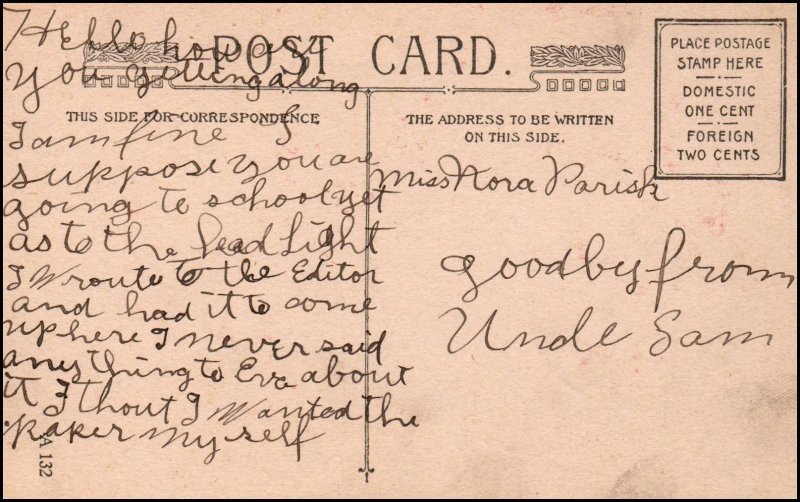 Hello how are
you getting along
I am fine I
suppose you are
going to school yet
as to the head Light
I wroute to the Editor
and had it to come
up here I never said
any thing to Eva about
it I thout I Wanted the
paker My self
A 132
POST CARD.
THIS SIDE FOR CORRESPONDENCE
THE ADDRESS TO BE WRITTEN
ON THIS SIDE.
PLACE POSTAGE
STAMP HERE
DOMESTIC
ONE CENT
FOREIGN
TWO CENTS
Miss Nora Parish
goodby from
Uncle Sam